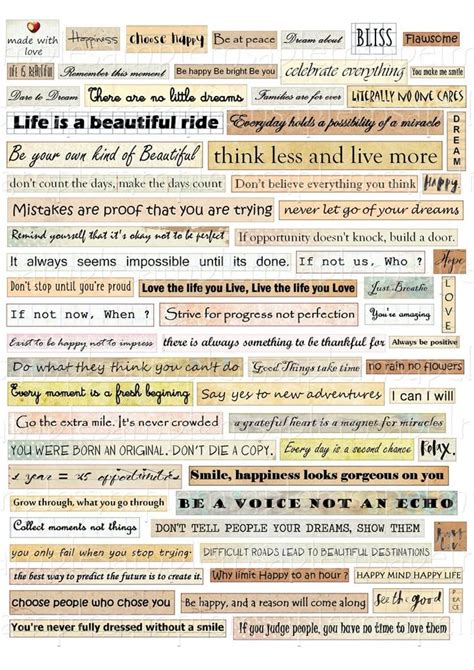 made with love
Happiness
choose happy
Be at peace
Dream about
BLISS
Flawsome
life is beautiful
Remember this moment
Be happy Be bright Be you
celebrate everything
You make me smile
Dare to Dream
There are no little dreams
Families are for ever
LITERALLY NO ONE CARES
Life is a beautiful ride
Everyday holds a possibility of a miracle
DREAM
Be your own kind of Beautiful
think less and live more
don't count the days, make the days count
Don't believe everything you think
Happy
Mistakes are proof that you are trying
never let go of your dreams
Remind yourself that it's okay not to be perfect
If opportunity doesn't knock, build a door.
It always seems impossible until its done.
If not us, Who ?
Hope
Don't stop until you're proud
Love the life you Live, Live the life you Love
Just Breathe
LOVE
If not now, When ?
Strive for progress not perfection
You're amazing
Exist to be happy not to impress
there is always something to be thankful for
Always be positive
Do what they think you can't do
Good Things take time
no rain no flowers
Every moment is a fresh begining
Say yes to new adventures
I can I will
Go the extra mile. It's never crowded
a grateful heart is a magnet for miracles
YOU WERE BORN AN ORIGINAL. DON'T DIE A COPY.
Every day is a second chance
Relax.
1 year = 365 opportunities
Smile, happiness looks gorgeous on you
Grow through, what you go through
BE A VOICE NOT AN ECHO
Collect moments not things
DON'T TELL PEOPLE YOUR DREAMS, SHOW THEM
you only fail when you stop trying.
DIFFICULT ROADS LEAD TO BEAUTIFUL DESTINATIONS
the best way to predict the future is to create it.
Why limit Happy to an hour ?
HAPPY MIND HAPPY LIFE
choose people who chose you
Be happy, and a reason will come along
see the good
PEACE
You're never fully dressed without a smile
If you judge people, you have no time to love them